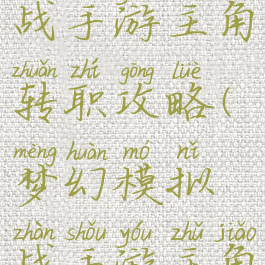 战手游主角
zhuǎn zhí gōng lüè
转职攻略(
mèng huàn mó nǐ
梦幻模拟
zhàn shǒu yóu zhǔ jiǎo
战手游主角